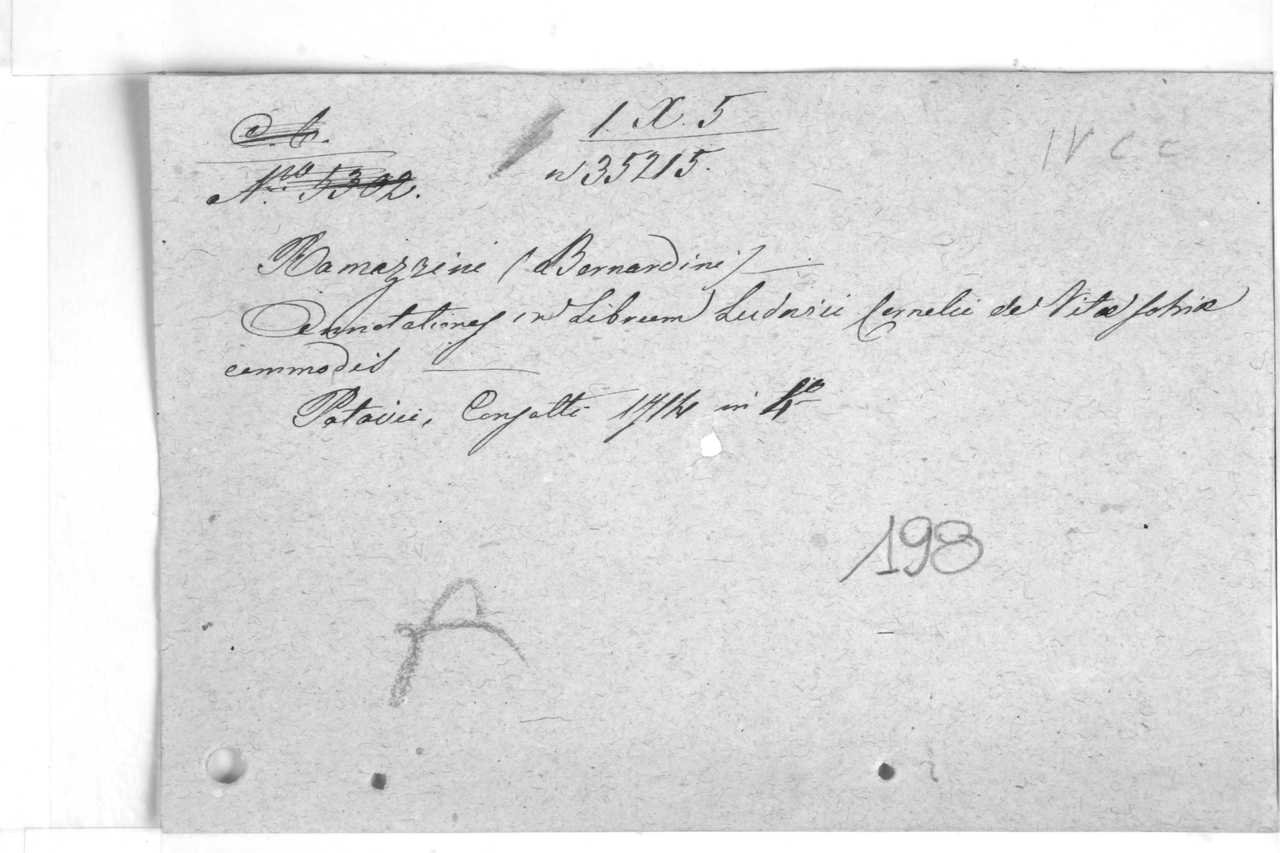 1. X. 5
IV C C
N.ro 5302.
n 35215.
Ramazzini (Bernardini)
Annotationes in Librum Ludovici Cornelii de Vitæ sobriæ
commodis
Patavii, Conzatti 1714 in 4to
198
A